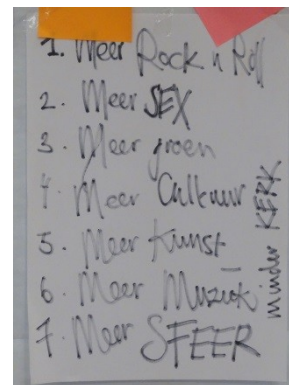 1. Meer Rock n Roll
2. Meer SEX
3. Meer groen
4. Meer Cultuur
5. Meer Kunst
6. Meer Muziek
7. Meer SFEER
minder KERK